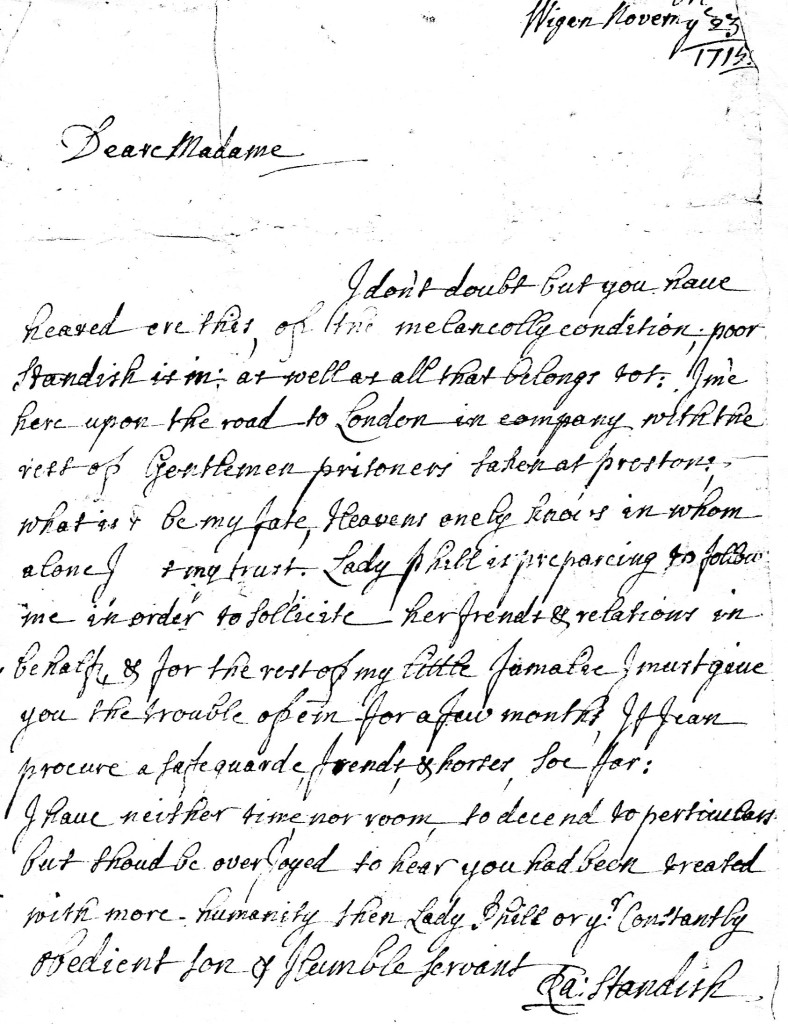 Wigen Novem y^e 23
1715.
Deare Madame
I don't doubt but you have
heared ere this, of the melancolly condition, poor
Standish is in: as well as all that belongs to't: I me
here upon the road to London in company with the
rest of Gentlemen prisoners taken at preston;
what is be my fate, Heavens onely knows in whom
alone I my trust. Lady Phill is prepareing to follow
me in order to sollicite her frends & relations in
behalf, & for the rest of my little famalie I must give
you the trouble of em for a few months, If I can
procure a safeguarde, frends, & horses, soe far:
I have neither time nor room, to decend to perticulars
but shoud be overjoyed to hear you had been treated
with more humanity then Lady Phill or y^r Constantly
obedient son & Humble servant
Ra: Standish